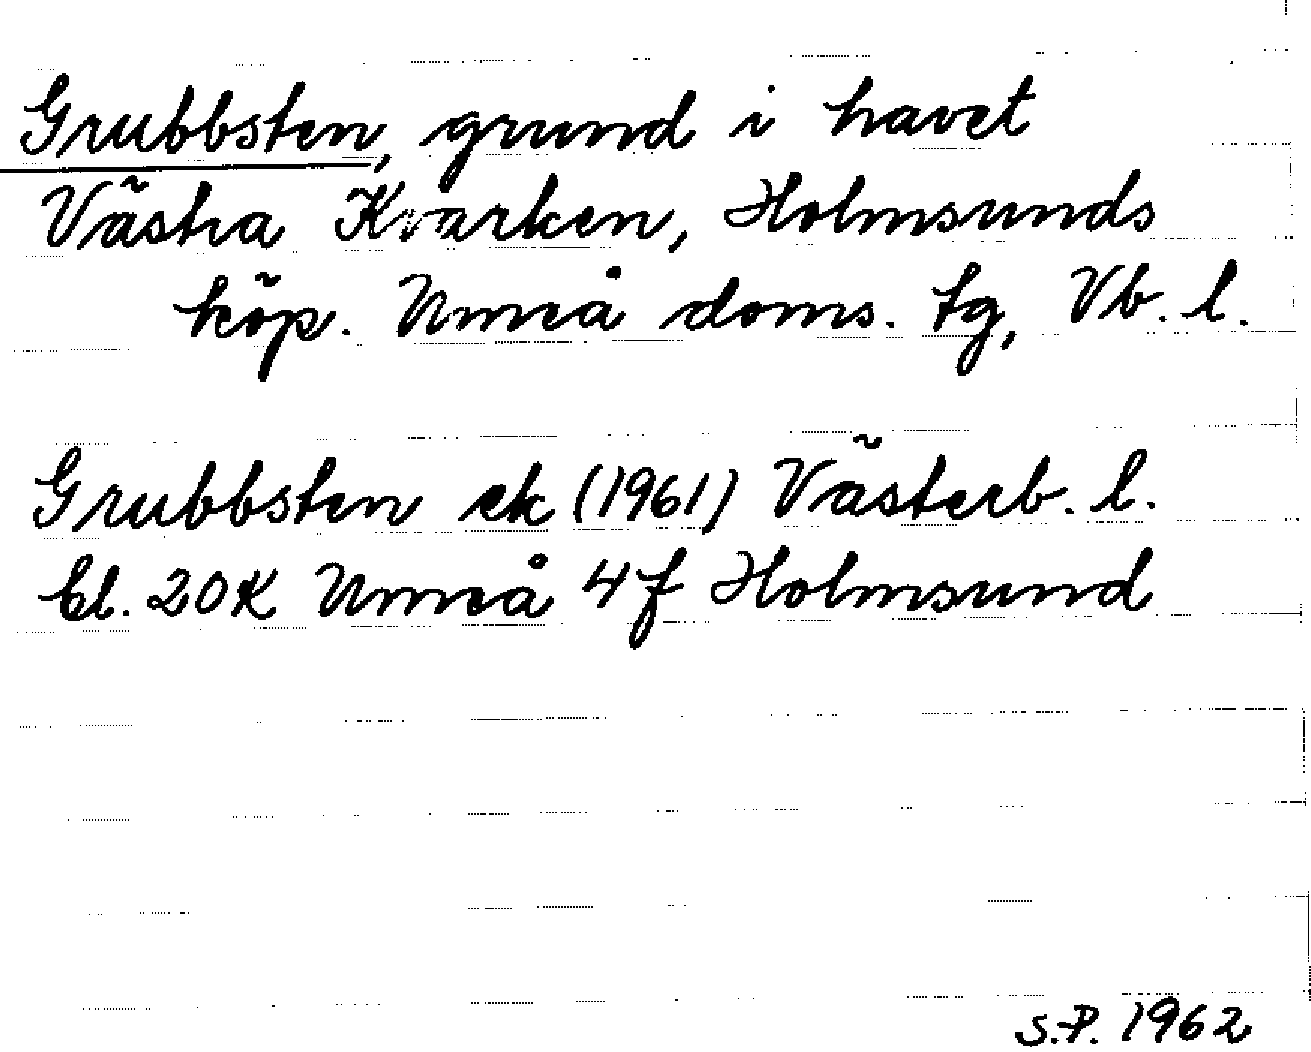 Grubbsten, grund i havet
Västra Kvarken, Holmsunds
köp. Umeå doms. tg, Vb. l.
Grubbsten ek (1961) Västerb. l.
bl. 20K Umeå 4f Holmsund
S.P. 1962